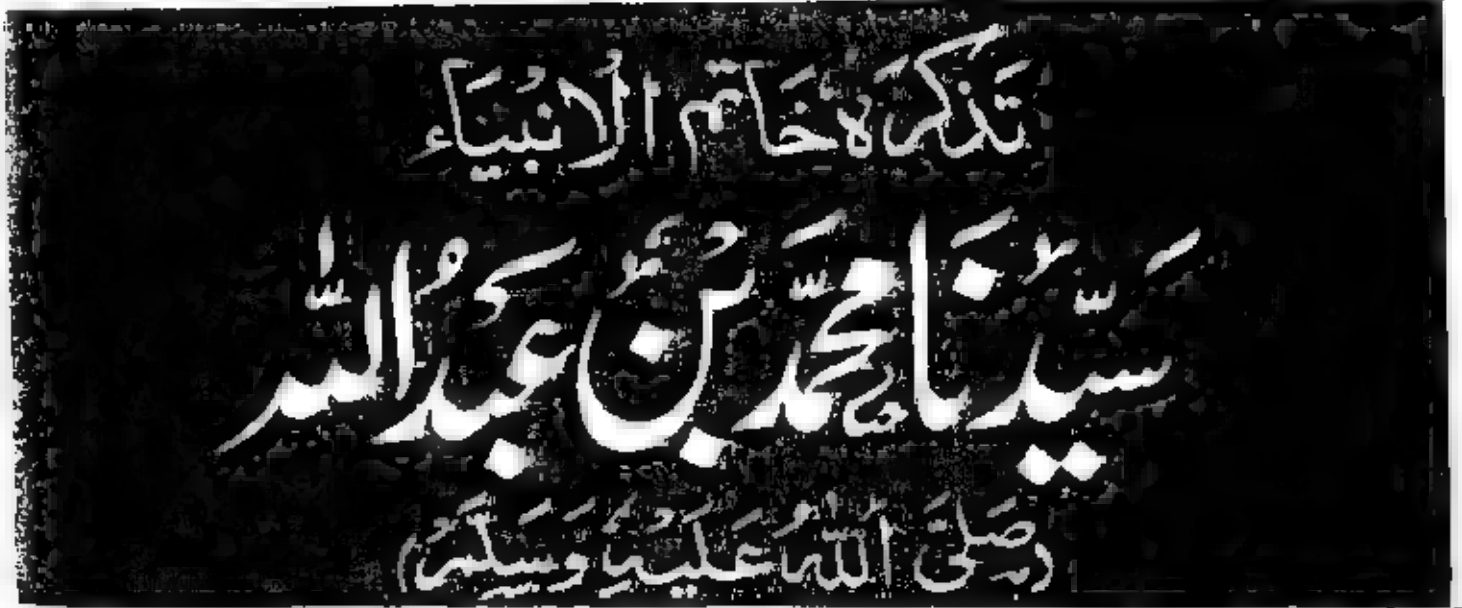 تَذکرَہ خَاتم الْانبیَاء
سَیّدنَا محَمَّد بُن عَبدُ اللہ
(صَلَّی اللہُ عَلَیْہِ وَسَلَّمَ)